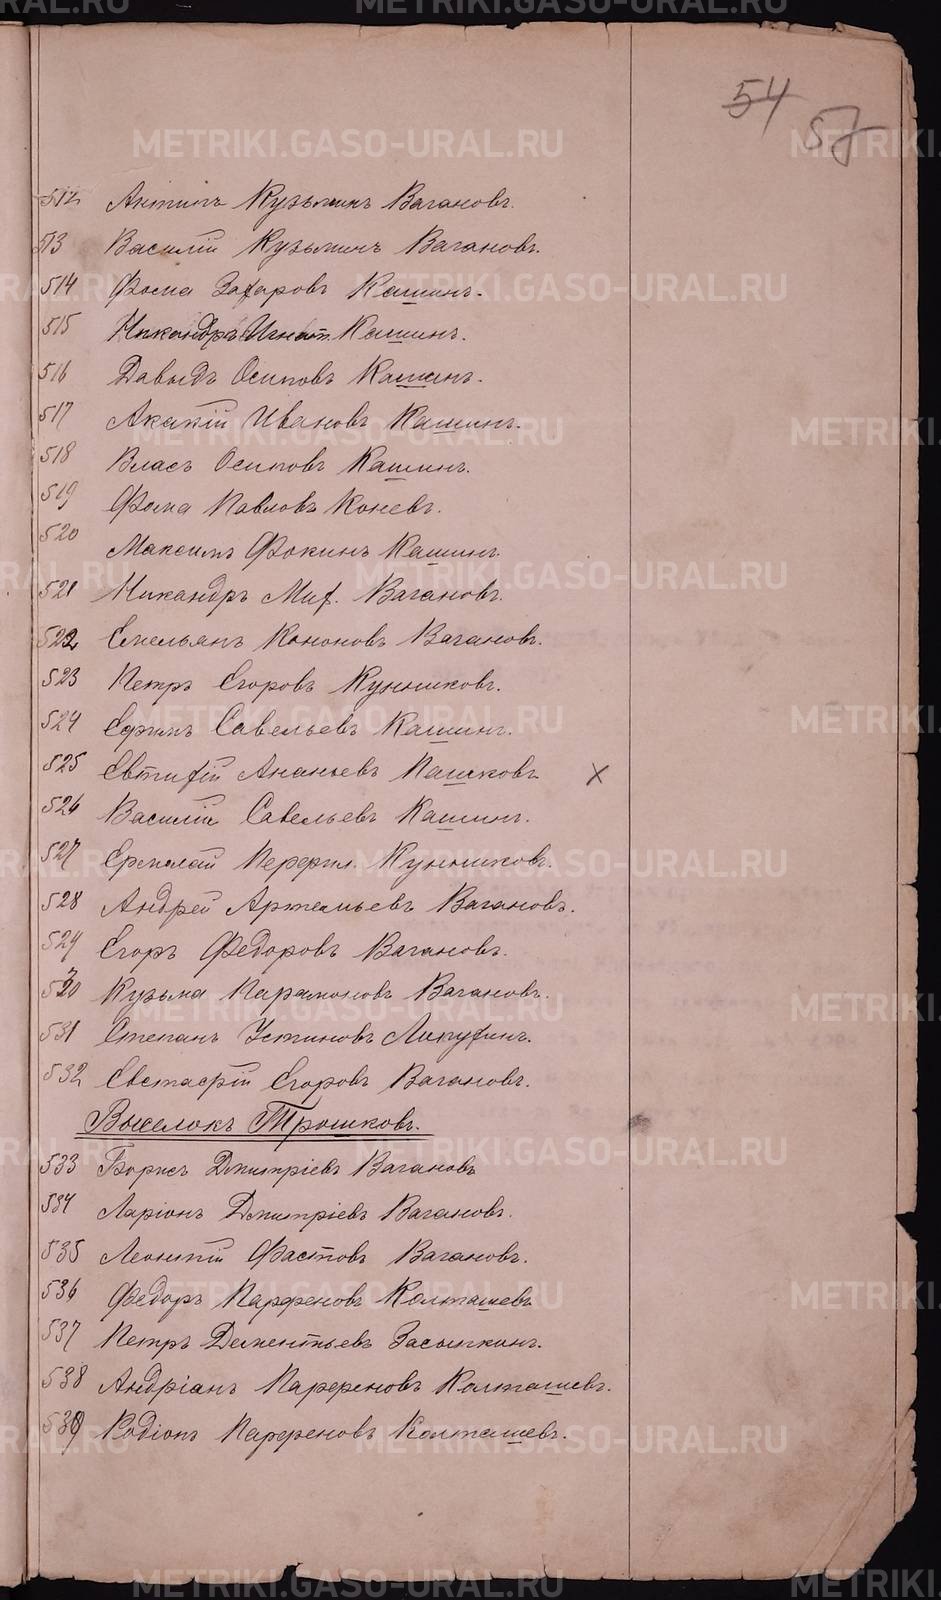 54
57
512 Антипъ Кузьминъ Вагановъ.
513 Василій Кузьминъ Вагановъ.
514 Фома Захаровъ Кашинъ.
515 Никандръ Игнат. Кашинъ.
516 Давыдъ Осиповъ Кашинъ.
517 Акакій Ивановъ Кашинъ.
518 Власъ Осиповъ Кашинъ.
519 Фома Павловъ Коневъ.
520 Максимъ Фокинъ Кашинъ.
521 Никандръ Мих. Вагановъ.
522 Емельянъ Кононовъ Вагановъ.
523 Петръ Егоровъ Кунниковъ.
524 Ефимъ Савельевъ Кашинъ.
525 Евтифій Ананьевъ Пашковъ х
526 Василій Савельевъ Кашинъ.
527 Ермолай Перфил. Кунниковъ.
528 Андрей Артемьевъ Вагановъ.
529 Егоръ Федоровъ Вагановъ.
530 Кузьма Парамоновъ Вагановъ.
531 Степанъ Устиновъ Липухинъ.
532 Евстафій Егоровъ Вагановъ.
Выселокъ Трошковъ.
533 Борисъ Дмитріевъ Вагановъ
534 Ларіонъ Дмитріевъ Вагановъ.
535 Леонтій Фастовъ Вагановъ.
536 Федоръ Парфеновъ Колташевъ
537 Петръ Дементьевъ Засыпкинъ.
538 Андріанъ Парфеновъ Колташевъ.
539 Родіонъ Парфеновъ Колташевъ.
METRIKI.GASO-URAL.RU